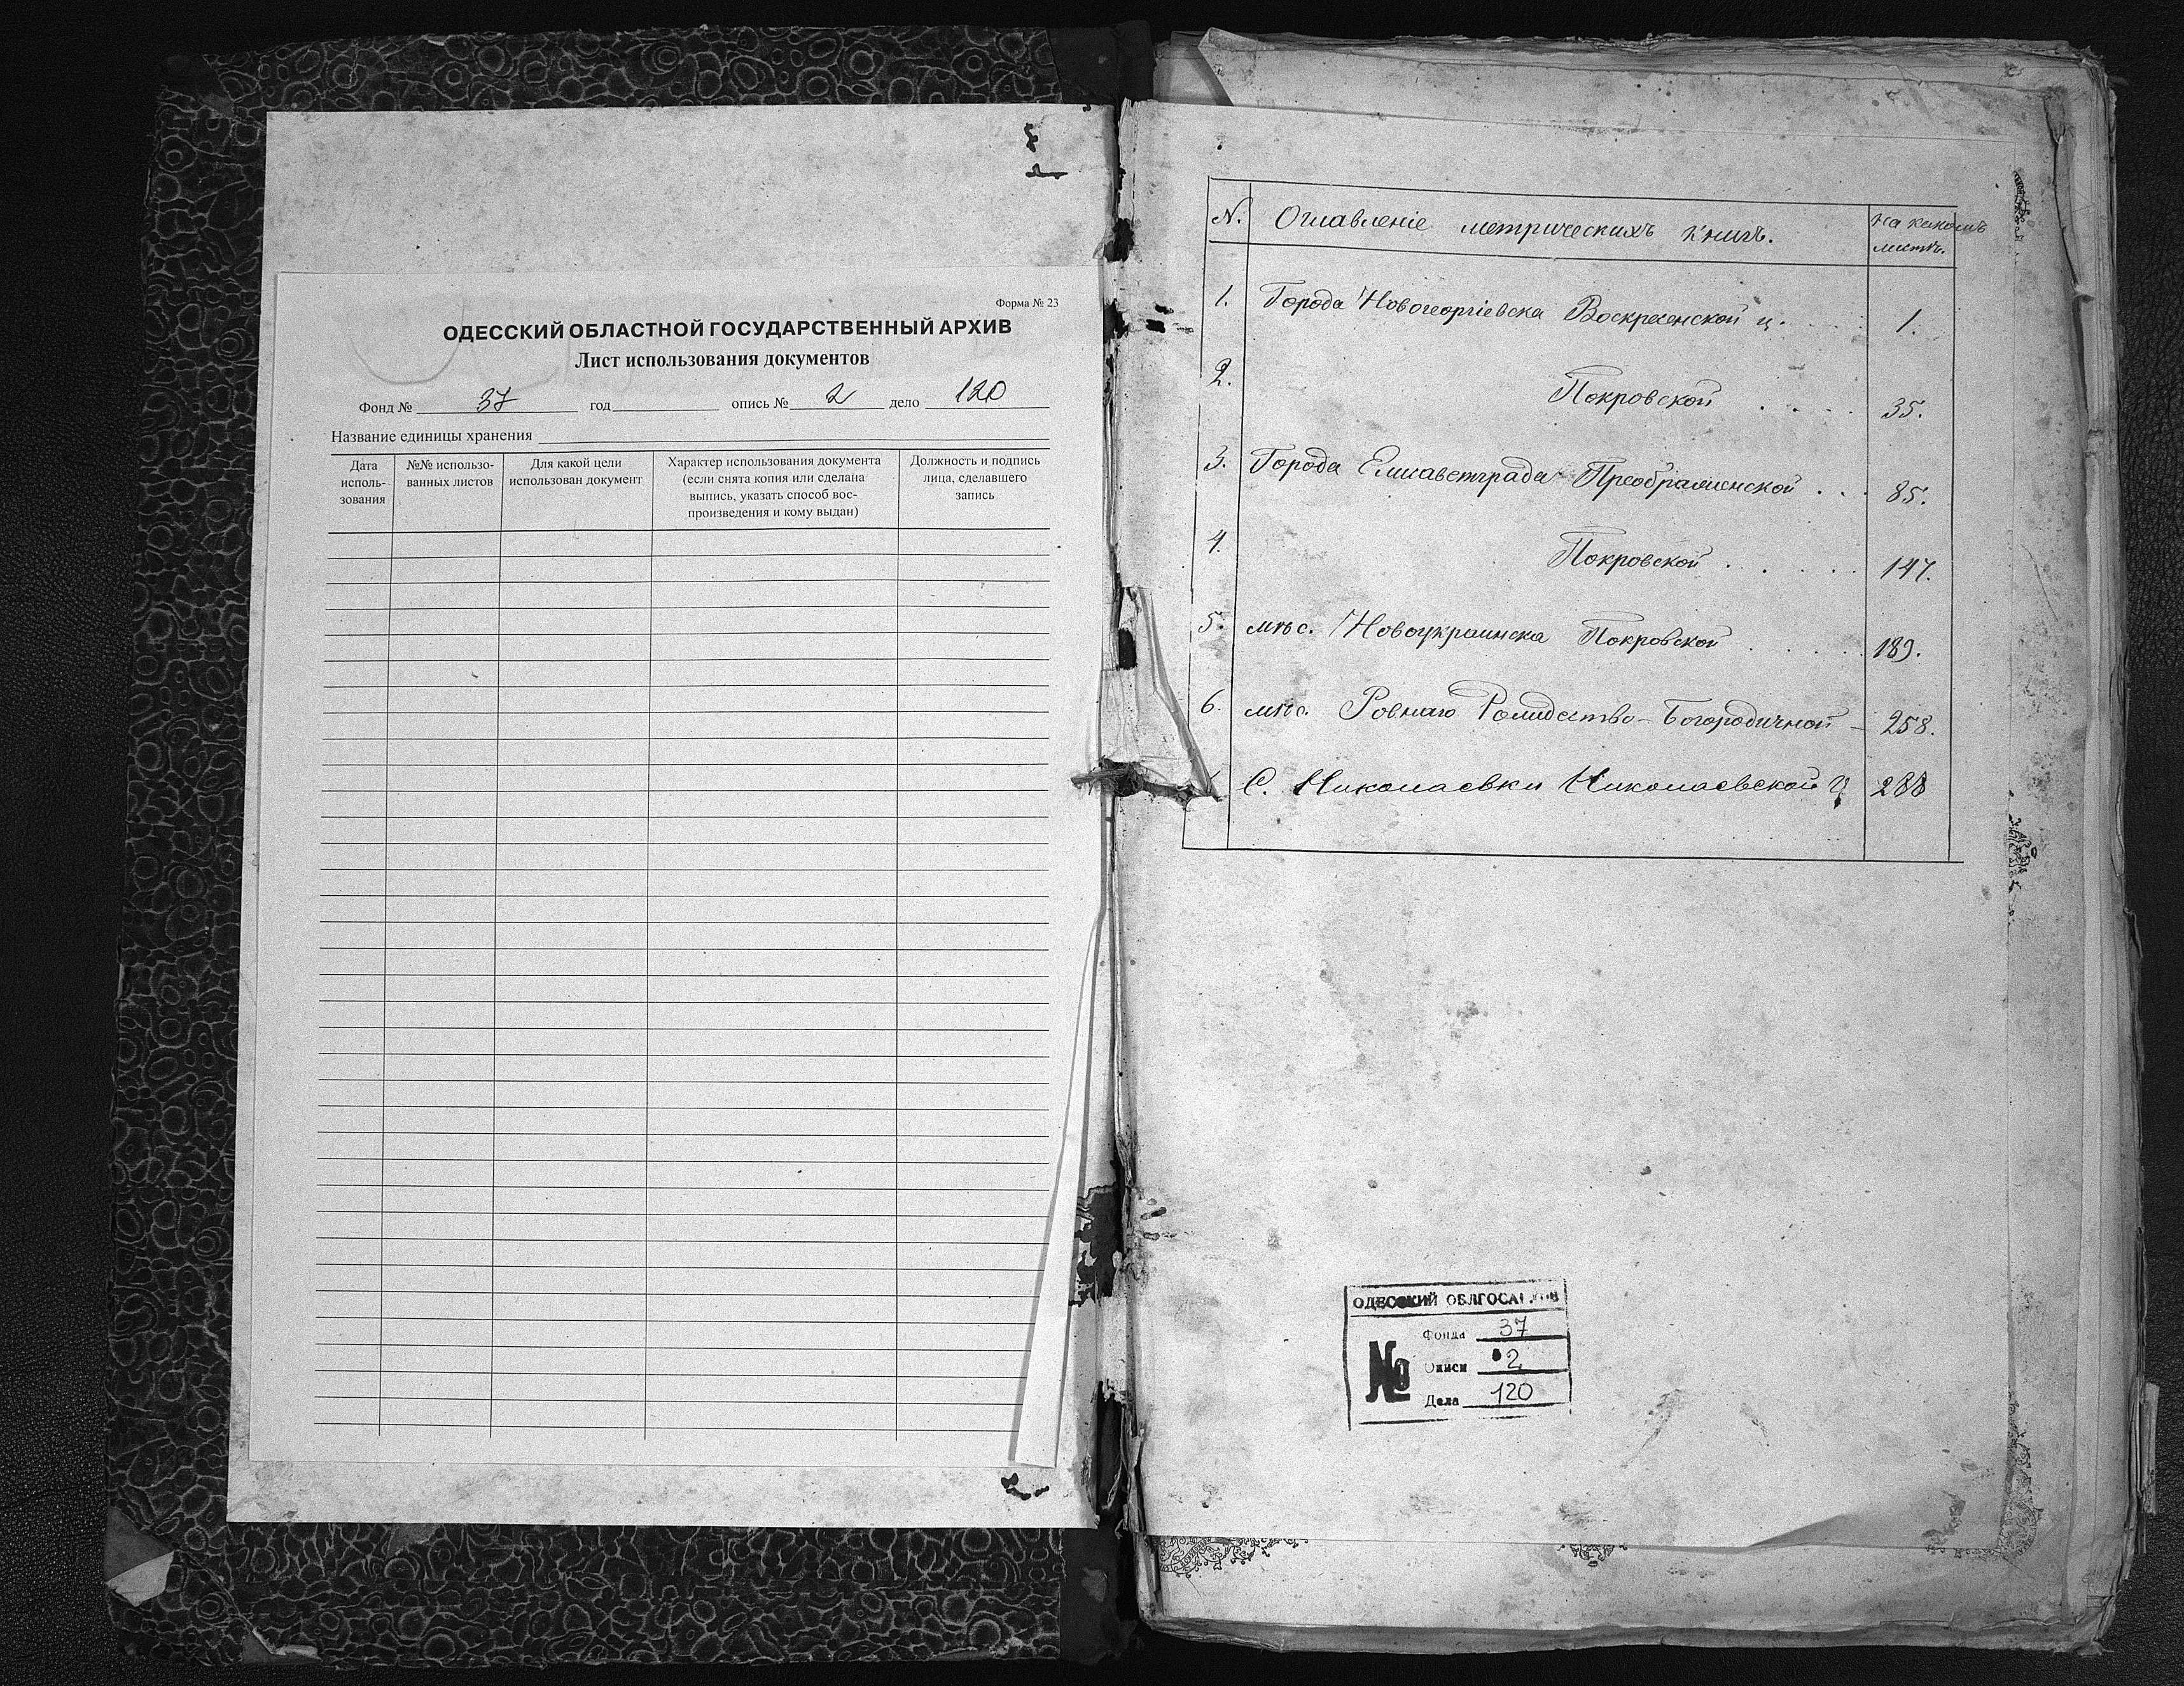 Форма № 23
ОДЕССКИЙ ОБЛАСТНОЙ ГОСУДАРСТВЕННЫЙ АРХИВ
Лист использования документов
Фонд № 37 год опись № 2 дело 120
Название единицы хранения
Дата исполь-зования
№№ использо-ванных листов
Для какой цели использован документ
Характер использования документа (если снята копия или сделана выпись, указать способ вос-произведения и кому выдан)
Должность и подпись лица, сделавшего запись
N. Оглавленіе метрическихъ книгъ. На какомъ листѣ.
1. Города Новогеоргіевска Воскресенской ц. 1.
2. Покровской 35.
3. Города Елисаветграда Преображенской 85.
4. Покровской 147.
5. мѣс. Новоукраинска Покровской 189.
6. мѣс. Ровнаго Рождество-Богородичной 258.
С. Николаевки Николаевской ц 288
ОДЕССКИЙ
Фонда 37
№ Описи 2
Дела 120